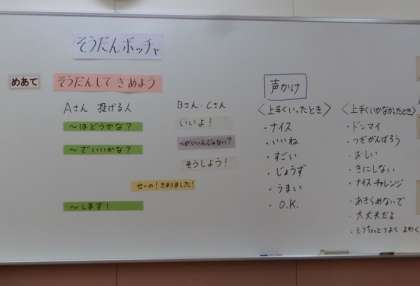 そうだんボッチャ
めあて
そうだんして きめよう
Aさん 投げる人
～はどうかな?
～でいいかな?
～します!
Bさん・Cさん
いいよ!
～がいいんじゃない?
そうしよう!
せーの!きまりました!
声かけ
〈上手くいったとき〉
・ナイス
・いいね
・すごい
・じょうず
・うまい
・O.K.
〈上手くいかなかったとき〉
・ドンマイ
・つぎがんばろう
・おしい
・きにしない
・ナイスチャレンジ
・あきらめないで
・大丈夫だよ